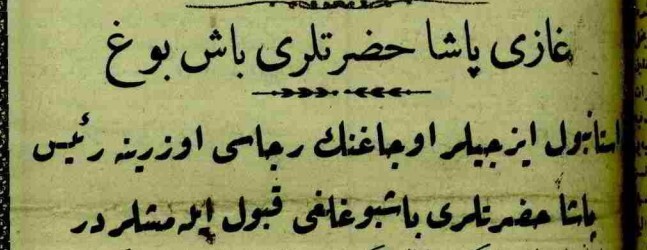 غازی پاشا حضرتلری باش بوغ
استانبول ایزجیلر اوجاغنك رجاسی اوزرینه رئیس
پاشا حضرتلری باشبوغلغی قبول ایله مشلردر